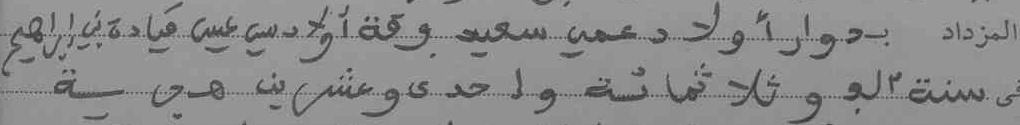 المزداد بدوار أولاد عمي سعيد فرقة أولاد سي عيسى قيادة بني إبراهيم
في سنة ألف وثلاثمائة واحدى وعشرين هجرية